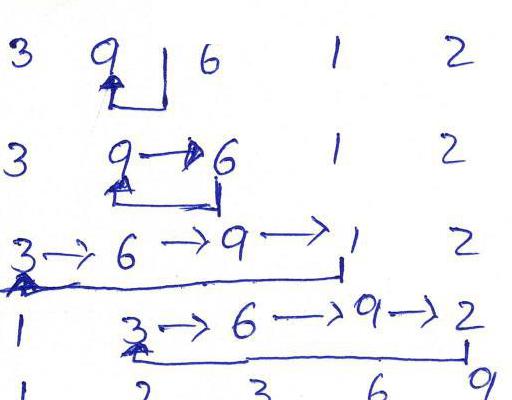 3 9 6 1 2
3 9 → 6 1 2
3 → 6 → 9 → 1 2
1 3 → 6 → 9 → 2
1 2 3 6 9